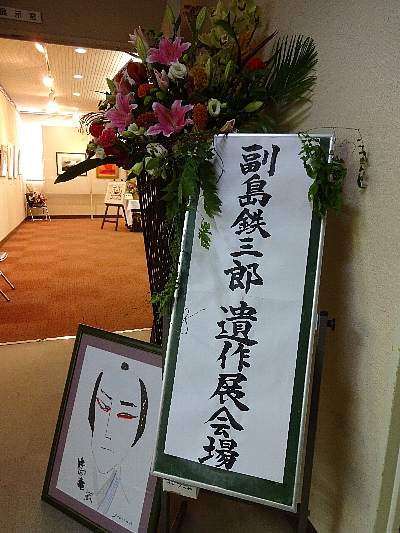 展示室
副島鉄三郎 遺作展会場